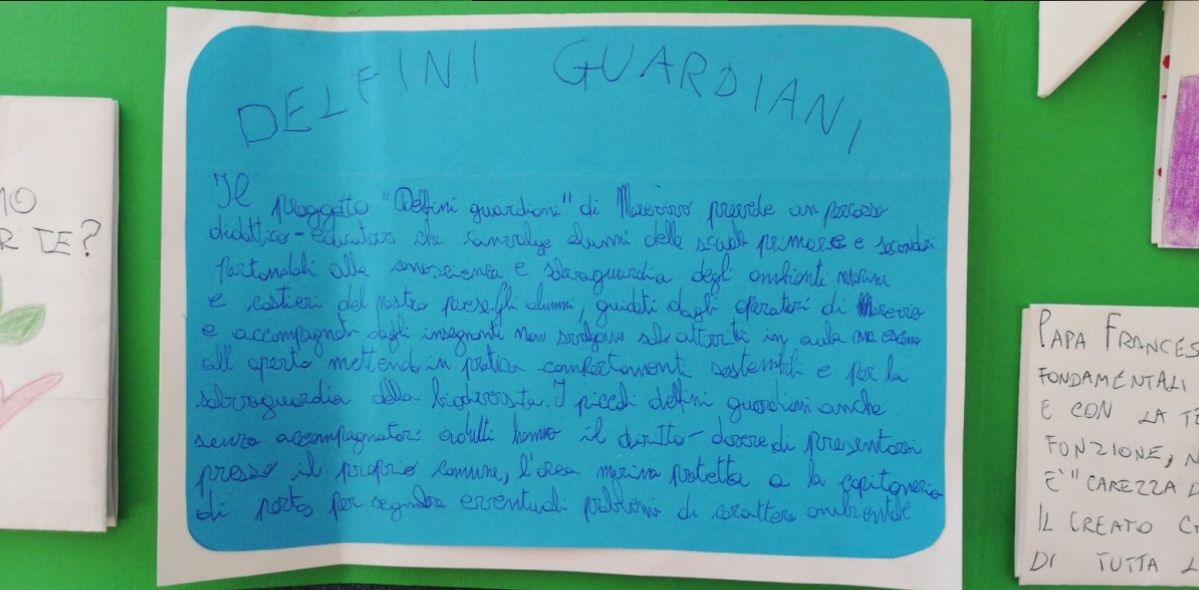 DELFINI GUARDIANI
Il proggetto "Delfini guardiani" di Marevivo prevede un percorso
didattico-educativo che coinvolge alunni delle scuole primare e secondari
portandoli alla conoscienza e salvaguardia degli ambienti marini
e costieri del nostro paese. Gli alunni, guidati dagli operatori di Marevivo
e accompagnati dagli insegnanti non svolgono solo attività in aula ma escono
all aperto mettendo in pratica comportamenti sostenibili e per la
salvaguardia della biodiversita. I piccoli delfini guardiani anche
senza accompagnatori adulti hanno il diritto-dovere di presentarsi
presso il proprio comune, l'area marina protetta o la capitaneria
di porto per segnalare eventuali problemi di carattere ambientale
MO
R TE?
PAPA FRANCES
FONDAMENTALI
E CON LA TE
FONZIONE, N
E' "CAREZZA D
IL CREATO C
DI TUTTA L